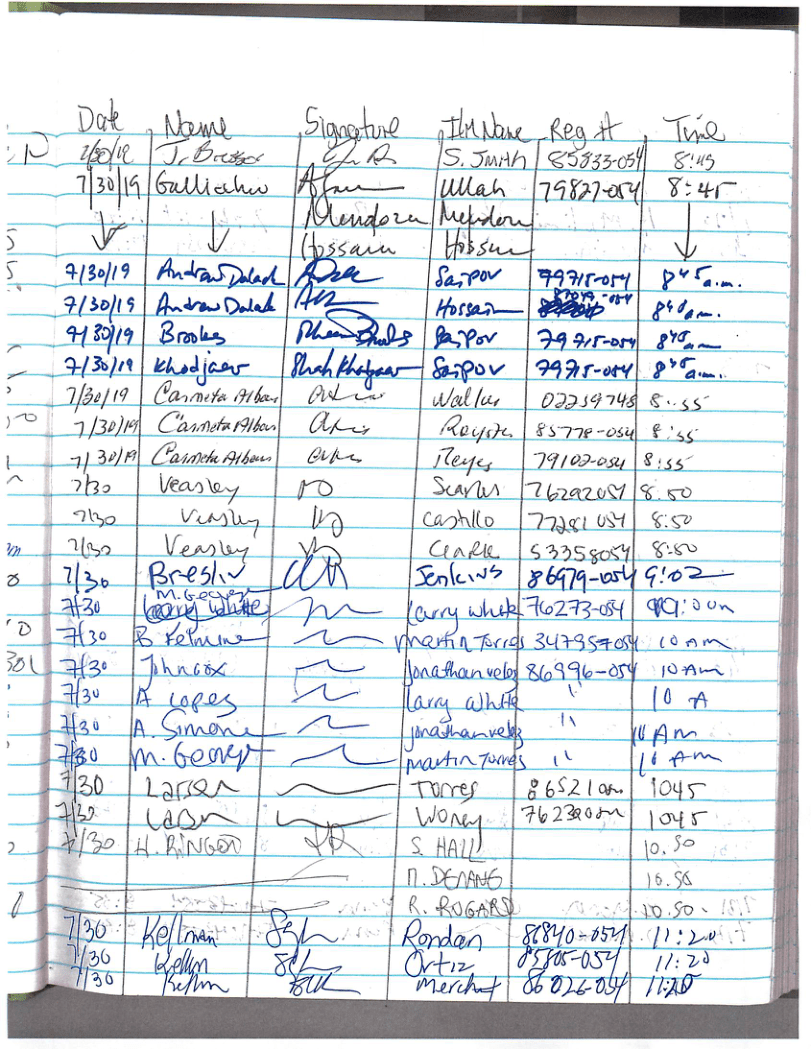 Date Name Signature I/M Name Reg # Time
7/30/19 J. S. Smith 85833-054 8:45
7/30/19 Gallicchio Ullah 79827-054 8:45
Mendoza Mendoza
Hossain Hossain
7/30/19 Andrew Dalack Saipov 79715-054 8:45 a.m.
7/30/19 Andrew Dalack Hossain 8:45 a.m.
7/30/19 Brooke Saipov 79715-054 8:45 am
7/30/19 Khodjaev Shah Khodjaev Saipov 79715-054 8:45 a.m.
7/30/19 Carmeta Albarus Walker 02259748 8:55
7/30/19 Carmeta Albarus Royster 85778-054 8:55
7/30/19 Carmeta Albarus Reyes 79102-054 8:55
7/30 Veasley 76292054 8:50
7/30 Veasley Castillo 77281 054 8:50
7/30 Veasley Clarke 53358054 8:50
7/30 Breslin Jenkins 86979-054 9:02
M. George
7/30 Larry White Larry White 76273-054 9:00am
7/30 B. Martin Torres 347957054 10 Am
7/30 John Cox Jonathan Velez 86996-054 10 Am
7/30 A Lopes Larry White " 10 A
7/30 A. Simone Jonathan Velez " 10 Am
7/30 M. George Martin Torres " 10 Am
7/30 Larsen Torres 1045
7/30 Larsen 1045
7/30 H. RINGOD S. HALL 10.50
10.50
R. ROGARD 10.50
7/30 Kellman Rondan 86840-054 11:20
7/30 Kellman Ortiz 85805-054 11:20
7/30 Kellman Merchant 86026-054 11:20